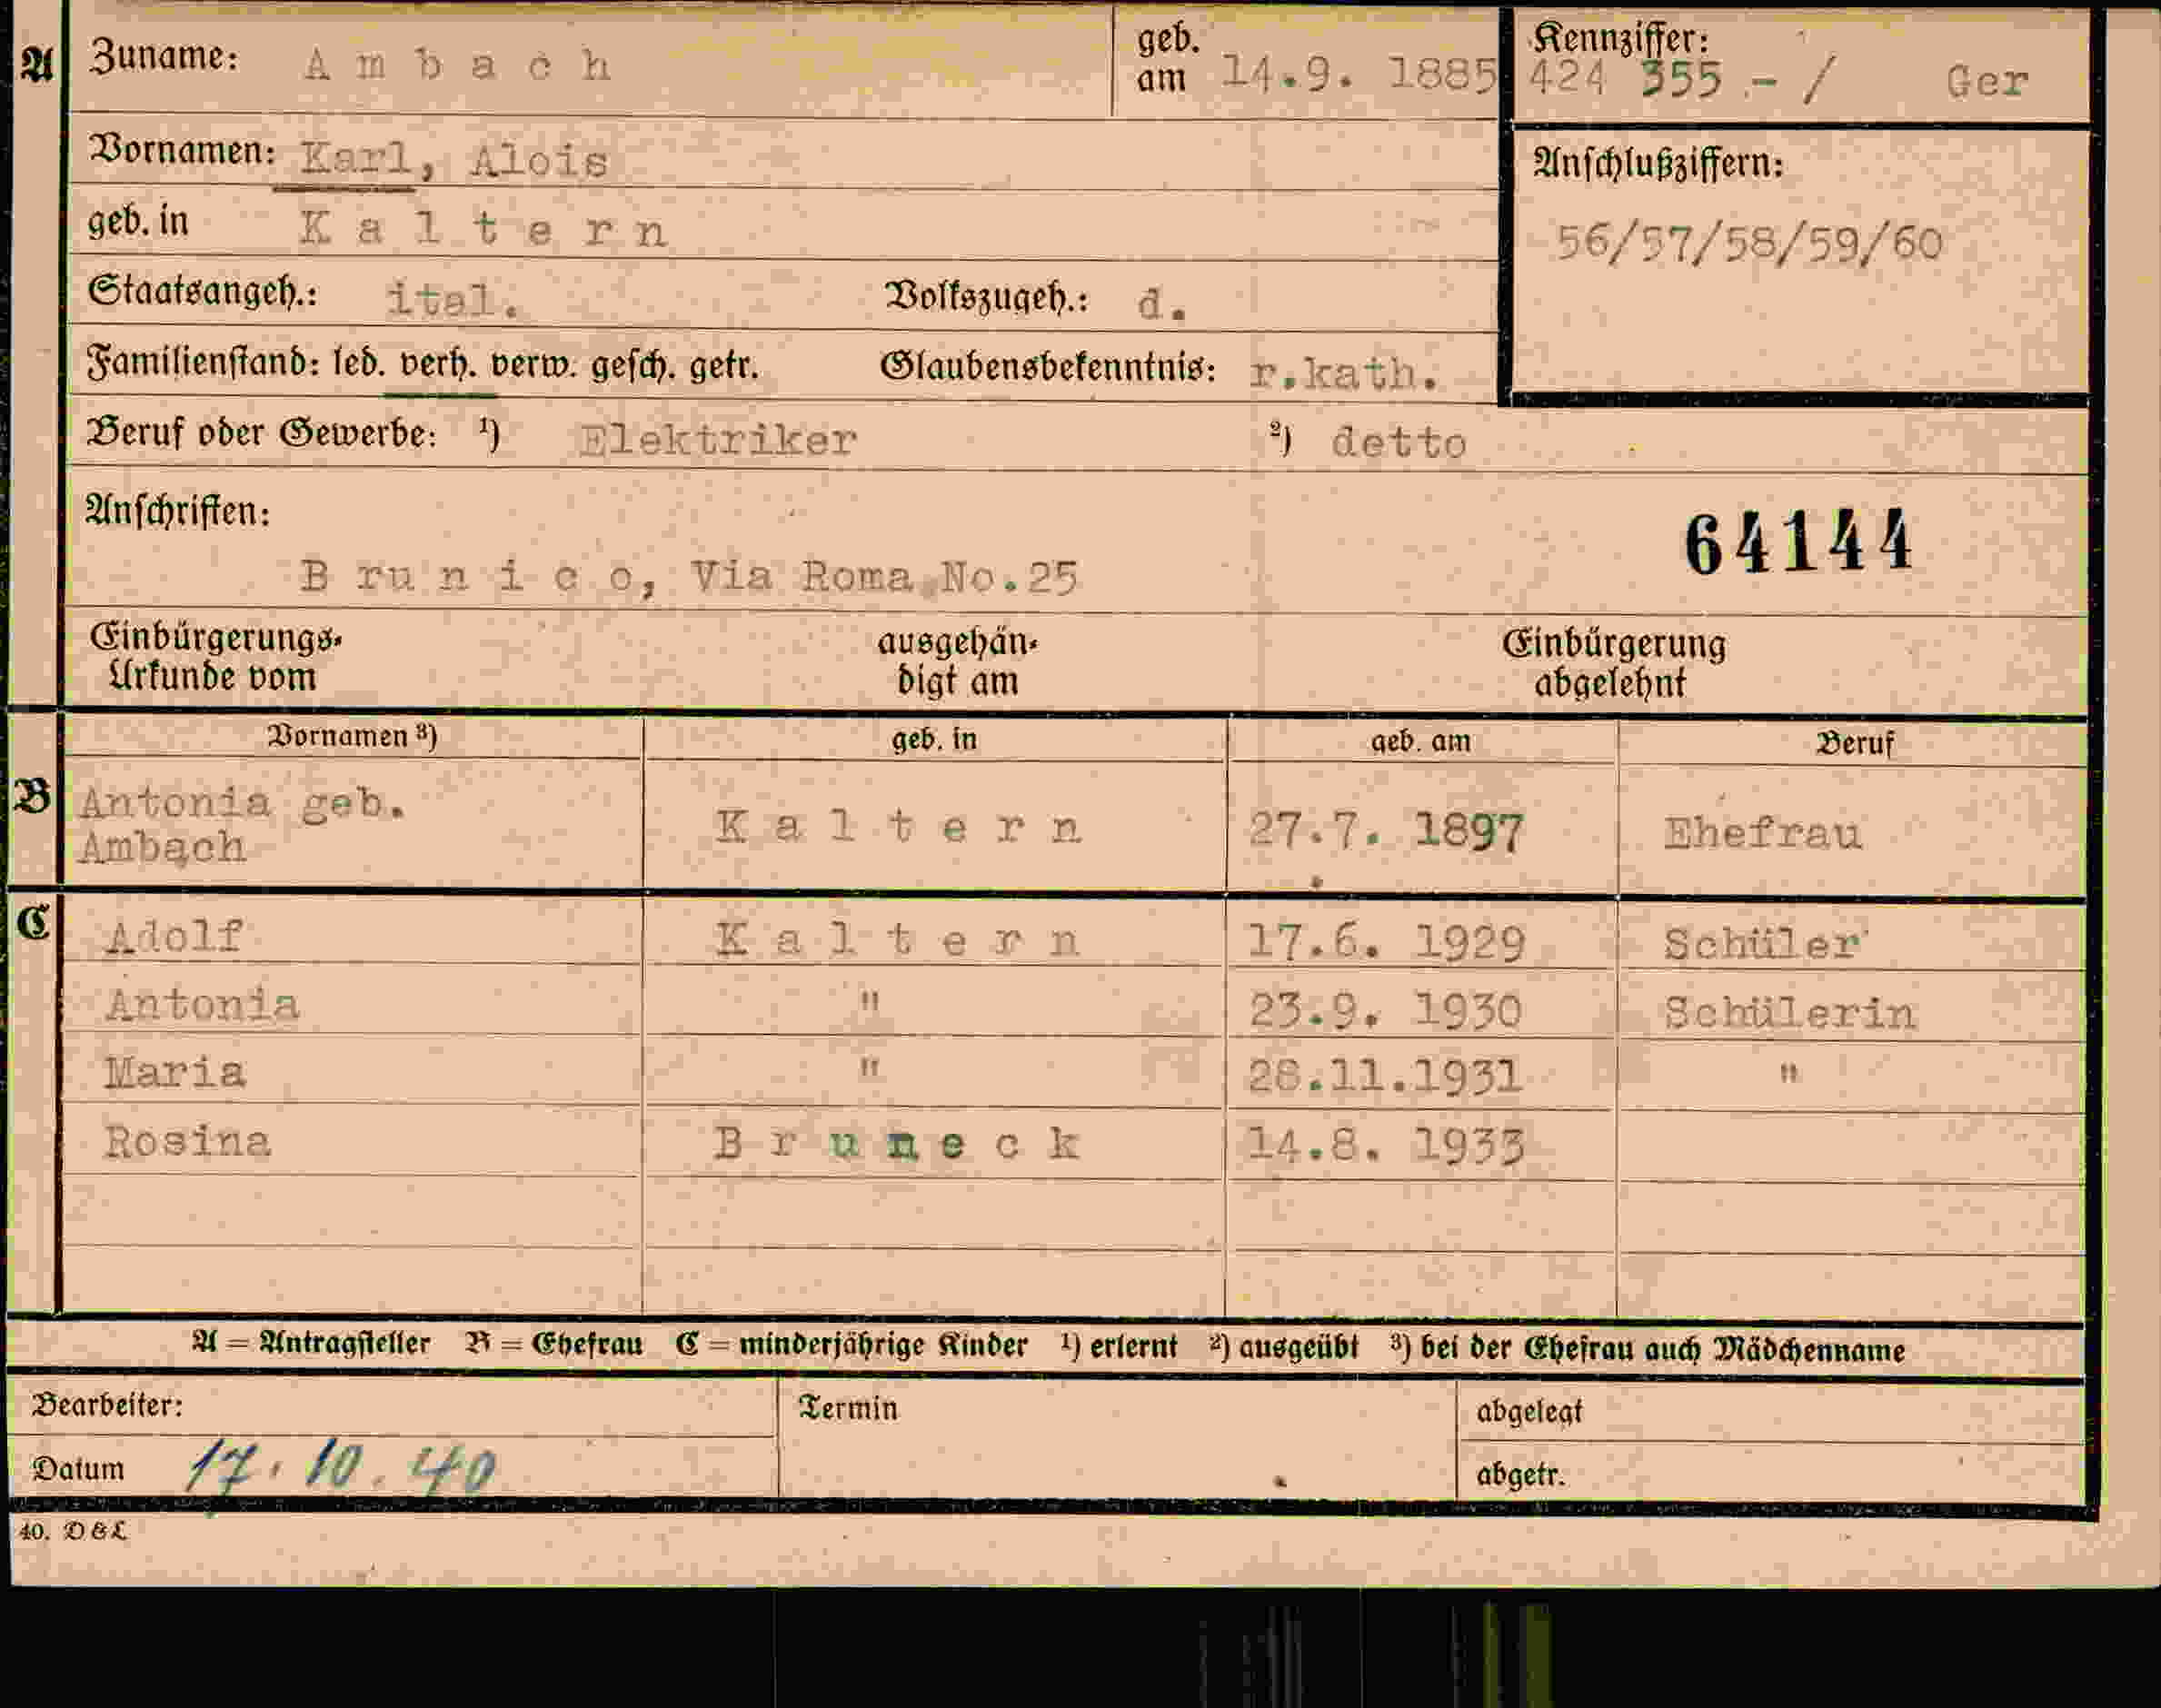 A Zuname: Ambach geb. am 14.9. 1885 Kennziffer: 424 355 .- / Ger
Vornamen: Karl, Alois Anschlußziffern:
geb. in Kaltern 56/57/58/59/60
Staatsangeh.: ital. Volkszugeh.: d.
Familienstand: led. verh. verw. gesch. getr. Glaubensbekenntnis: r.kath.
Beruf oder Gewerbe: ¹) Elektriker ²) detto
Anschriften: 64144
Brunico, Via Roma No.25
Einbürgerungs- ausgehän- Einbürgerung
Urkunde vom digt am abgelehnt
Vornamen ³) geb. in geb. am Beruf
B Antonia geb. Kaltern 27.7. 1897 Ehefrau
Ambach
C Adolf Kaltern 17.6. 1929 Schüler
Antonia " 23.9. 1930 Schülerin
Maria " 28.11.1931 "
Rosina Bruneck 14.8. 1933
A = Antragsteller B = Ehefrau C = minderjährige Kinder ¹) erlernt ²) ausgeübt ³) bei der Ehefrau auch Mädchenname
Bearbeiter: Termin abgelegt
Datum 17. 10. 40 abgetr.
40. D & L